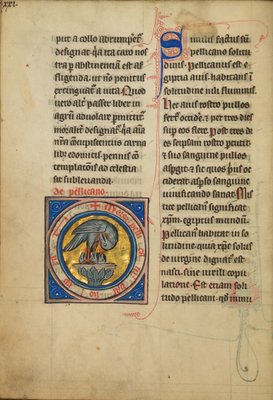 xxi.
pur a collo abrumpere
designat. q̃a ita caro nos
tra p abstinentiam est af
fligenda. ut nõ penitus
extinguat̃ a uita. Quod
uero alt̃ passer liber in
agrũ aduolare
designat q̃a
concupiscentiis carna
pennis cõ
templationis ad celestia
est subleuanda.
de pellicano.
Similis factus sum
pellicano solitu
dinis. Pellicanus est e
giptia auis. habitans ĩ
solitudine nili fluminis.
Hec auis rostro pullos
fert̃ occide̾. & per tres dies
sup eos flere. Post tres di
es seipsam rostro petit.
& suo sanguine pullos
aspgit. & sic quos prius oc
ciderat asp̃so sanguine
uiuificando sanat. Mis
tice pellicanus significat
xp̃m. egiptus mundum.
Pellicanus habitat in so
litudine. quia xp̃c solus
de uirgine dignat̃ est
nasci. sine uirili copu
latione. Est etiam soli
tudo pellicani. q̃d